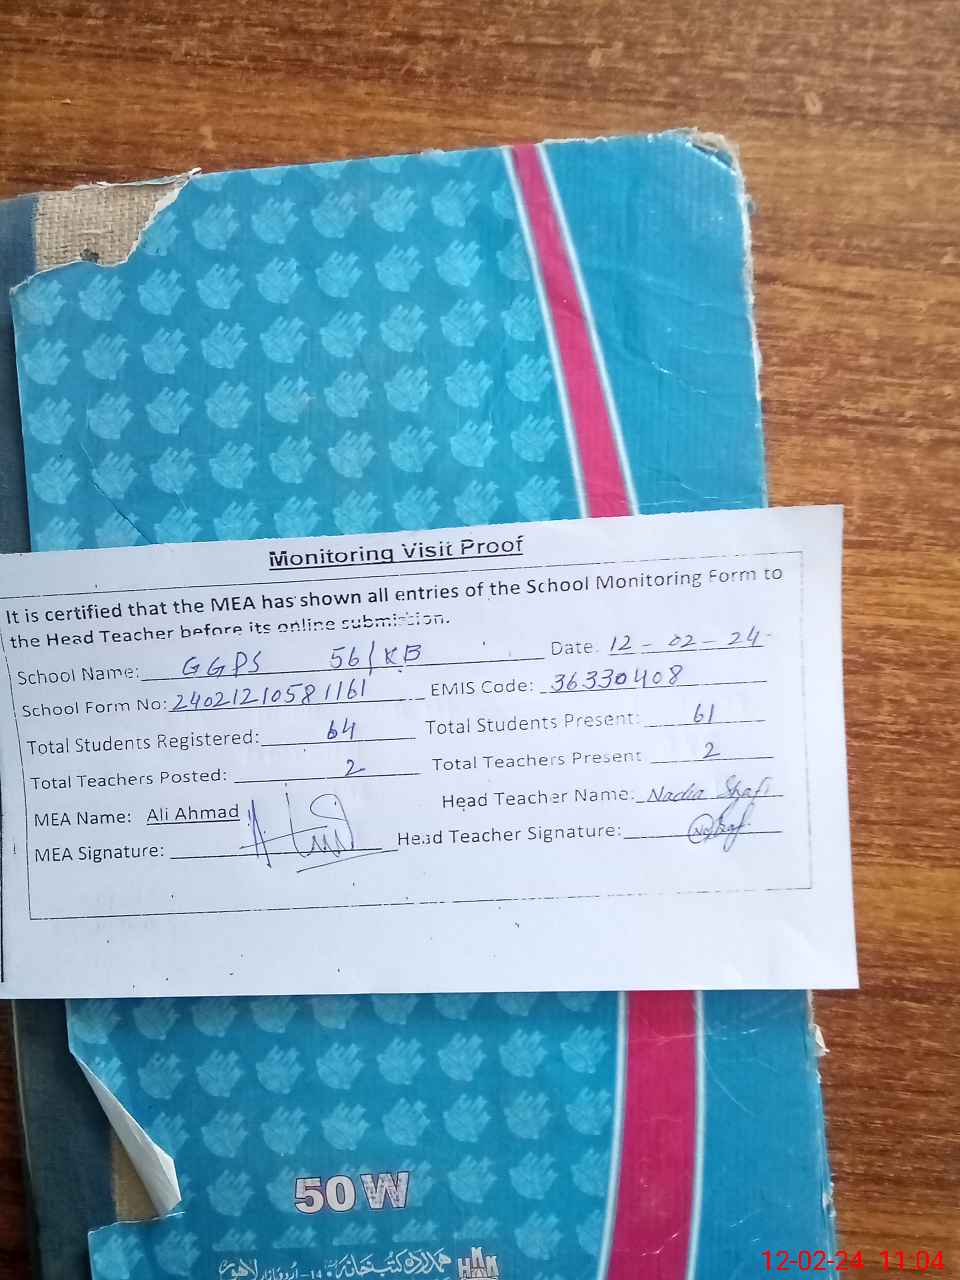 Monitoring Visit Proof
It is certified that the MEA has shown all entries of the School Monitoring Form to
the Head Teacher before its online submission.
School Name: GGPS 56/KB Date: 12-02-24
School Form No: 24021210581161 EMIS Code: 36330408
Total Students Registered: 64 Total Students Present: 61
Total Teachers Posted: 2 Total Teachers Present 2
MEA Name: Ali Ahmad Head Teacher Name: Nadia Shafi
MEA Signature: Head Teacher Signature:
50 W
ہمالہ کتب خانہ 14-اردو بازار لاہور
12-02-24 11:04